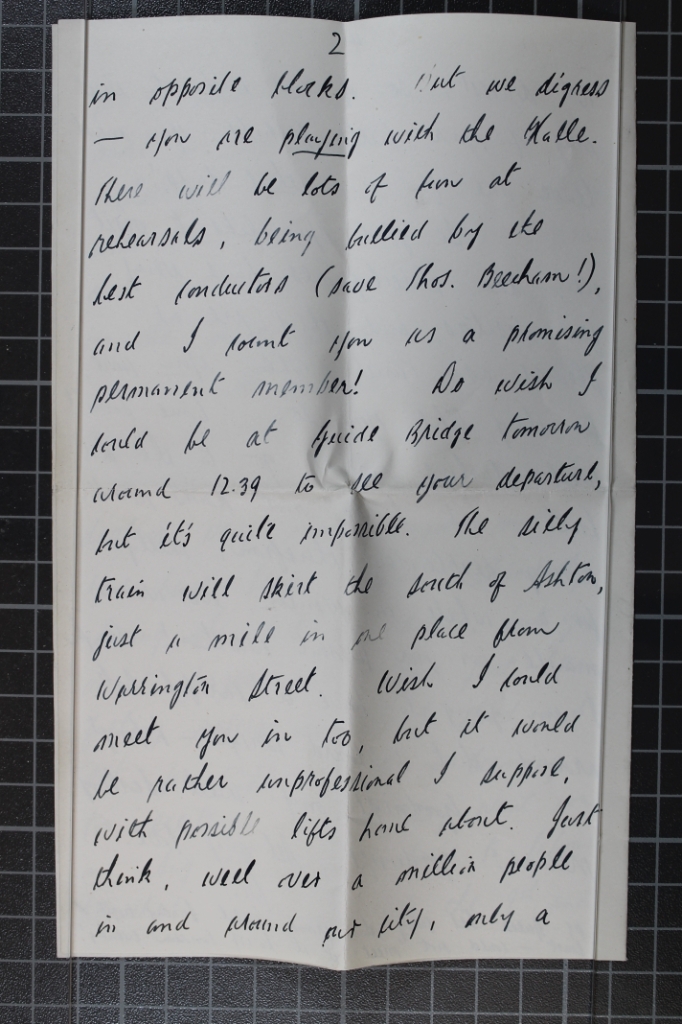 2
in opposite blocks. But we digress
— you are playing with the Halle.
There will be lots of fun at
rehearsals, being bullied by the
best conductors (save Thos. Beecham!),
and I count you as a promising
permanent member! Do wish I
could be at Guide Bridge tomorrow
around 12.39 to see your departure,
but it's quite impossible. The silly
train will skirt the south of Ashton,
just a mile in one place from
Warrington Street. Wish I could
meet you in too, but it would
be rather unprofessional I suppose,
with possible lifts home about. Just
think, well over a million people
in and around our city, only a